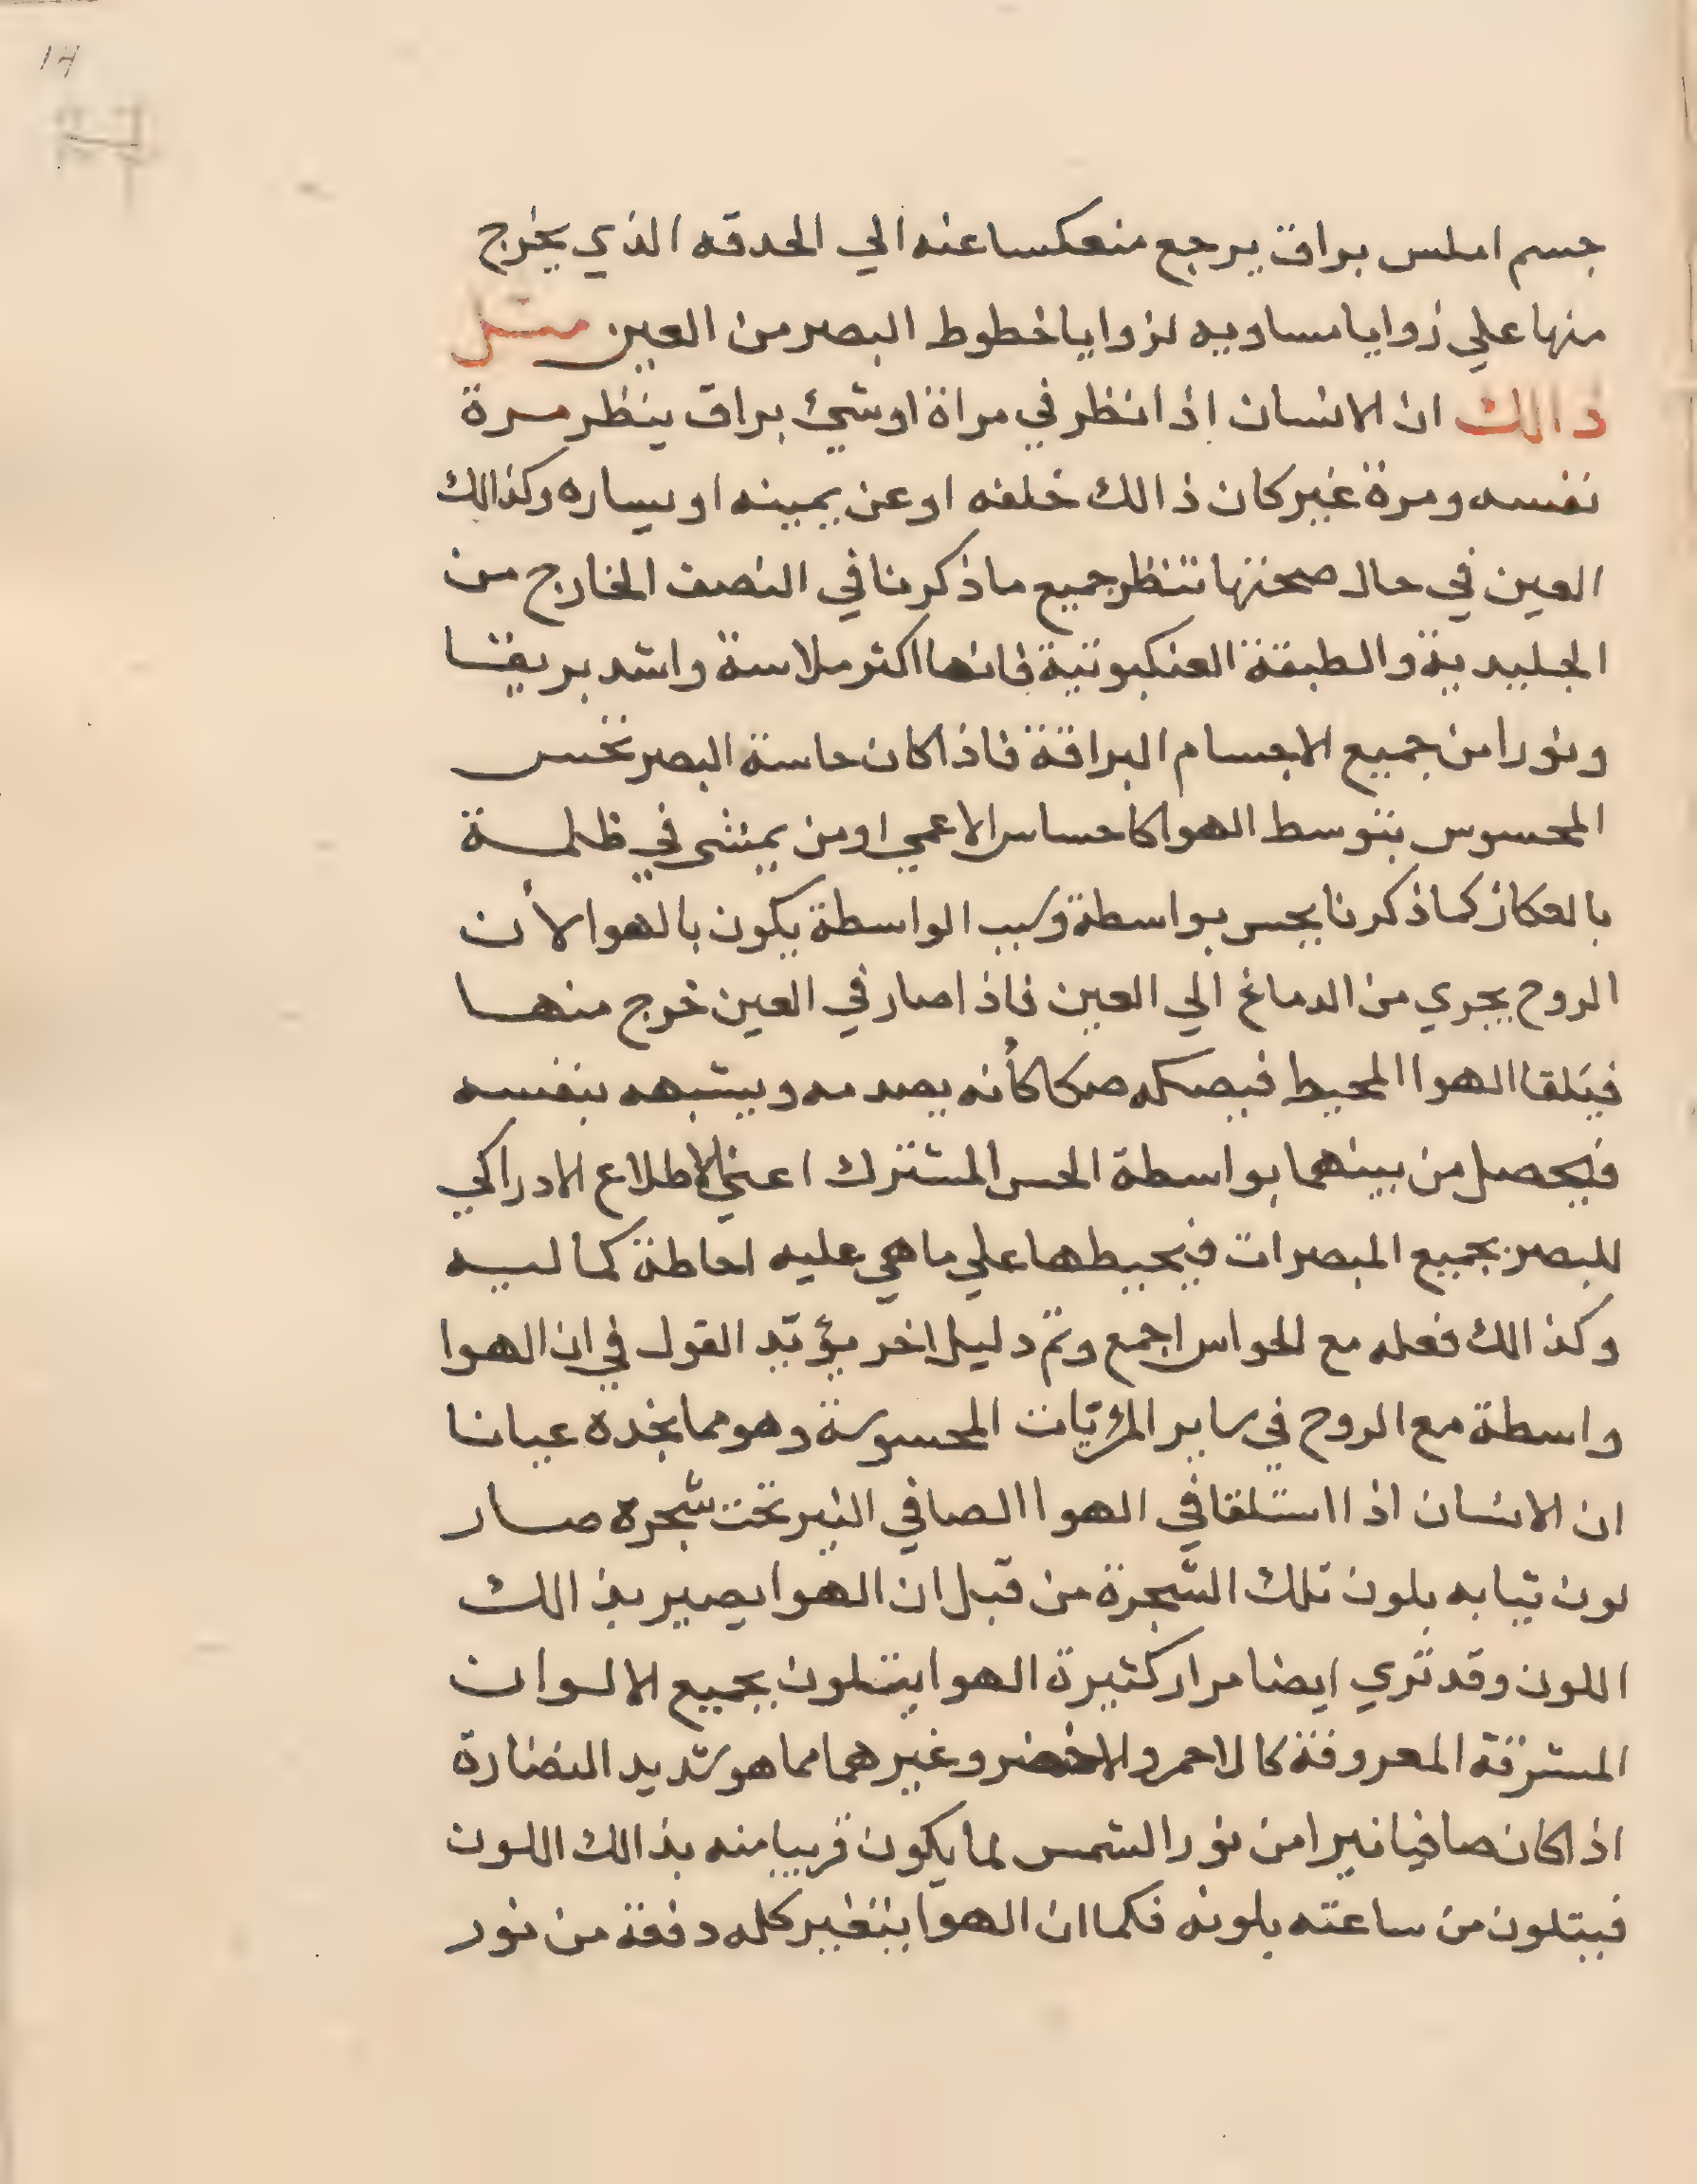 14
جسم املس براق يرجع منعكسا عنه الي الحدقه الذي يخرج
منها علي زوايا مساويه لزوايا خطوط البصر من العين مثل
ذالك ان الانسان اذا نظر في مراة اوشيء براق ينظر مرة
نفسه ومرة غير كان ذالك خلفه او عن يمينه او يساره وكذالك
العين في حال صحتها تنظر جميع ماذكرنا في النصف الخارج من
الجليدية والطبقة العنكبوتية فانها اكثر ملاسة واشد بريقا
ونورا من جميع الاجسام البراقة فاذا كان حاسة البصر تحس
المحسوس بتوسط الهوا كاحساس الاعمي اومن يمشي في ظلمة
بالعكاز كما ذكرنا يحس بواسطة وسبب الواسطة يكون بالهوا لأن
الروح يجري من الدماغ الي العين فاذا صار في العين خرج منها
فيلقا الهوا المحيط فيصكه صكا كأنه يصدمه ويشبهه بنفسه
فيحصل من بينهما بواسطة الحس المشترك اعني الاطلاع الادراكي
للبصر بجميع المبصرات فيحيطها علي ماهي عليه احاطة كماليه
وكذالك فعله مع الحواس اجمع وثم دليل اخر يؤيد القول في ان الهوا
واسطة مع الروح في ساير المرئيات المحسوسة وهو مما نجده عيانا
ان الانسان اذا استلقا في الهوا الصافي النير تحت شجره صار
لون ثيابه بلون تلك الشجرة من قبل ان الهوا يصير بذالك
اللون وقد نري ايضا مرار كثيرة الهوا يتلون بجميع الالوان
المشرقة المعروفة كالاحمر والاخضر وغيرهما مما هو شديد النضارة
اذا كان صافيا نيرا من نور الشمس لما يكون قريبا منه بذالك اللون
فيتلون من ساعته بلونه فكما ان الهوا يتغير كله دفعة من نور